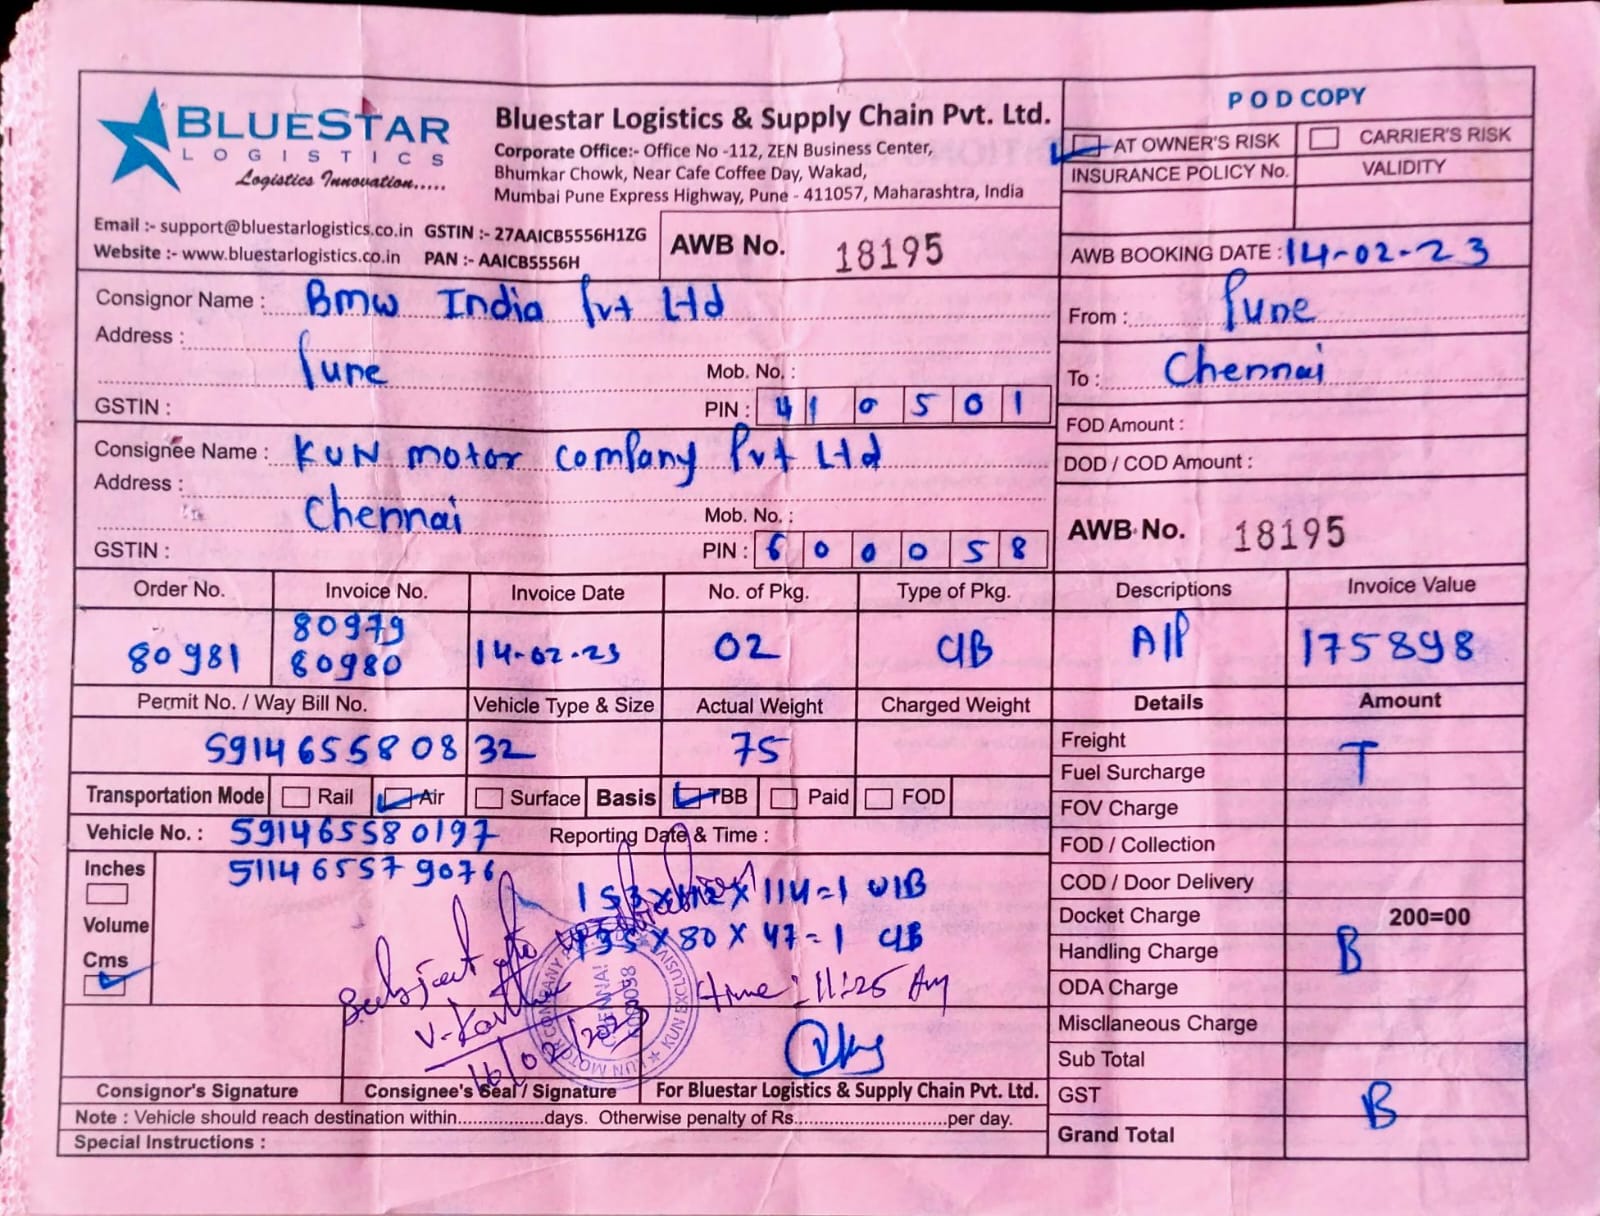 BLUESTAR
LOGISTICS
Logistics Innovation.....
Bluestar Logistics & Supply Chain Pvt. Ltd.
Corporate Office:- Office No -112, ZEN Business Center,
Bhumkar Chowk, Near Cafe Coffee Day, Wakad,
Mumbai Pune Express Highway, Pune - 411057, Maharashtra, India
Email :- support@bluestarlogistics.co.in GSTIN :- 27AAICB5556H1ZG
Website :- www.bluestarlogistics.co.in PAN :- AAICB5556H
AWB No. 18195
P O D COPY
AT OWNER'S RISK CARRIER'S RISK
INSURANCE POLICY No. VALIDITY
AWB BOOKING DATE : 14-02-23
Consignor Name : Bmw India Pvt Ltd
Address :
Pune
Mob. No. :
GSTIN : PIN : 410501
From : Pune
To : Chennai
Consignee Name : KUN motor company Pvt Ltd
Address :
Chennai
Mob. No. :
GSTIN : PIN : 600058
FOD Amount :
DOD / COD Amount :
AWB No. 18195
Order No. Invoice No. Invoice Date No. of Pkg. Type of Pkg. Descriptions Invoice Value
80979
80981 80980 14-02-23 02 C/B A/P 175898
Permit No. / Way Bill No. Vehicle Type & Size Actual Weight Charged Weight Details Amount
591465580832 75
Transportation Mode Rail Air Surface Basis TBB Paid FOD
Vehicle No. : 591465580197 Reporting Date & Time :
511465579076
Inches
Volume
Cms
153 x 112 x 114 = 1 W/B
135 x 80 x 47 = 1 C/B
Subject to
V-Karthi
16/02/2023
time : 11:25 Am
KUN MOTOR COMPANY
CHENNAI
600058
KUN EXCLUSIVE
Freight T
Fuel Surcharge
FOV Charge
FOD / Collection
COD / Door Delivery
Docket Charge 200=00
Handling Charge B
ODA Charge
Miscllaneous Charge
Sub Total
GST B
Grand Total
Consignor's Signature Consignee's Seal / Signature For Bluestar Logistics & Supply Chain Pvt. Ltd.
Note : Vehicle should reach destination within.................days. Otherwise penalty of Rs..............................per day.
Special Instructions :